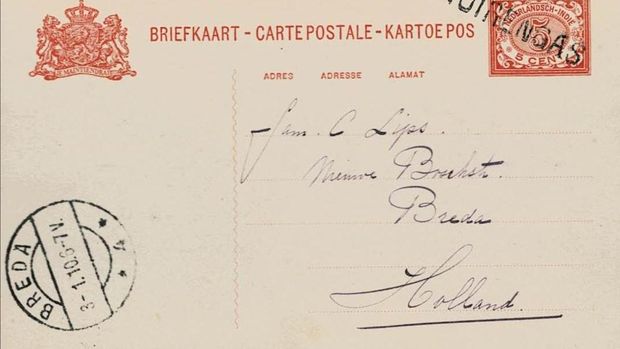 BRIEFKAART - CARTE POSTALE - KARTOE POS
NEDERLANDSCH-INDIE
5
5 CENT
JE MAINTIENDRAI
ADRES ADRESSE ALAMAT
Fam. C Lips.
Nieuwe
Breda
Holland.
BREDA
3-1.10.6-7V.
4